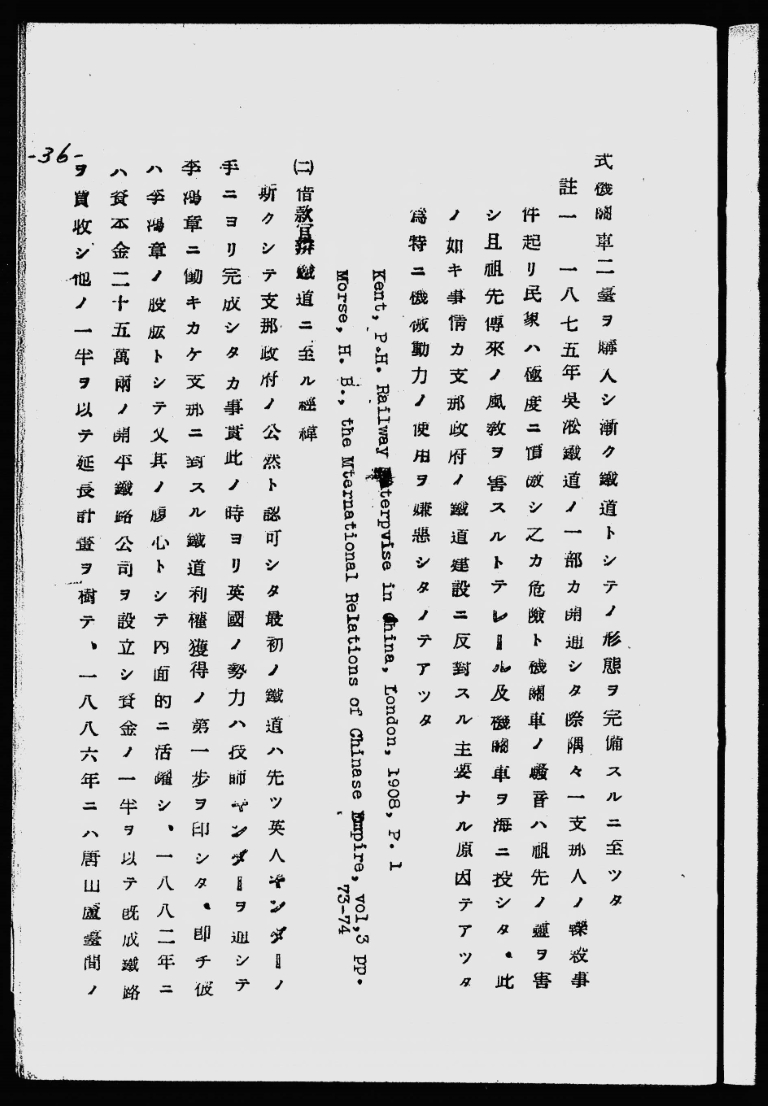 式機關車二臺ヲ購入シ漸ク鐵道トシテノ形態ヲ完備スルニ至ツタ
註一 一八七五年吳淞鐵道ノ一部カ開通シタ際隅々一支那人ノ轢殺事
件起リ民衆ハ極度ニ憤激シ之カ危險ト機關車ノ騷音ハ祖先ノ靈ヲ害
シ且祖先傳來ノ風敎ヲ害スルトテレール及機關車ヲ海ニ投シタ。此
ノ如キ事情カ支那政府ノ鐵道建設ニ反對スル主要ナル原因テアツタ
爲特ニ機械動力ノ使用ヲ嫌惡シタノテアツタ
Kent, P.H. Railway Enterpvise in China, London, 1908, P. 1
Morse, H. B., the Mternational Relations of Chinase Empire, vol,3 pp.
73-74
㈡借款官辨鐵道ニ至ル經緯
斯クシテ支那政府ノ公然ト認可シタ最初ノ鐵道ハ先ツ英人キンダーノ
手ニヨリ完成シタカ事實此ノ時ヨリ英國ノ勢力ハ技師キンダーヲ通シテ
李鴻章ニ働キカケ支那ニ對スル鐵道利權獲得ノ第一步ヲ印シタ。卽チ彼
ハ李鴻章ノ股肱トシテ又其ノ腹心トシテ內面的ニ活躍シ、一八八二年ニ
ハ資本金二十五萬兩ノ開平鐵路公司ヲ設立シ資金ノ一半ヲ以テ旣成鐵路
ヲ買收シ他ノ一半ヲ以テ延長計畫ヲ樹テ、一八八六年ニハ唐山蘆臺間ノ
-36-